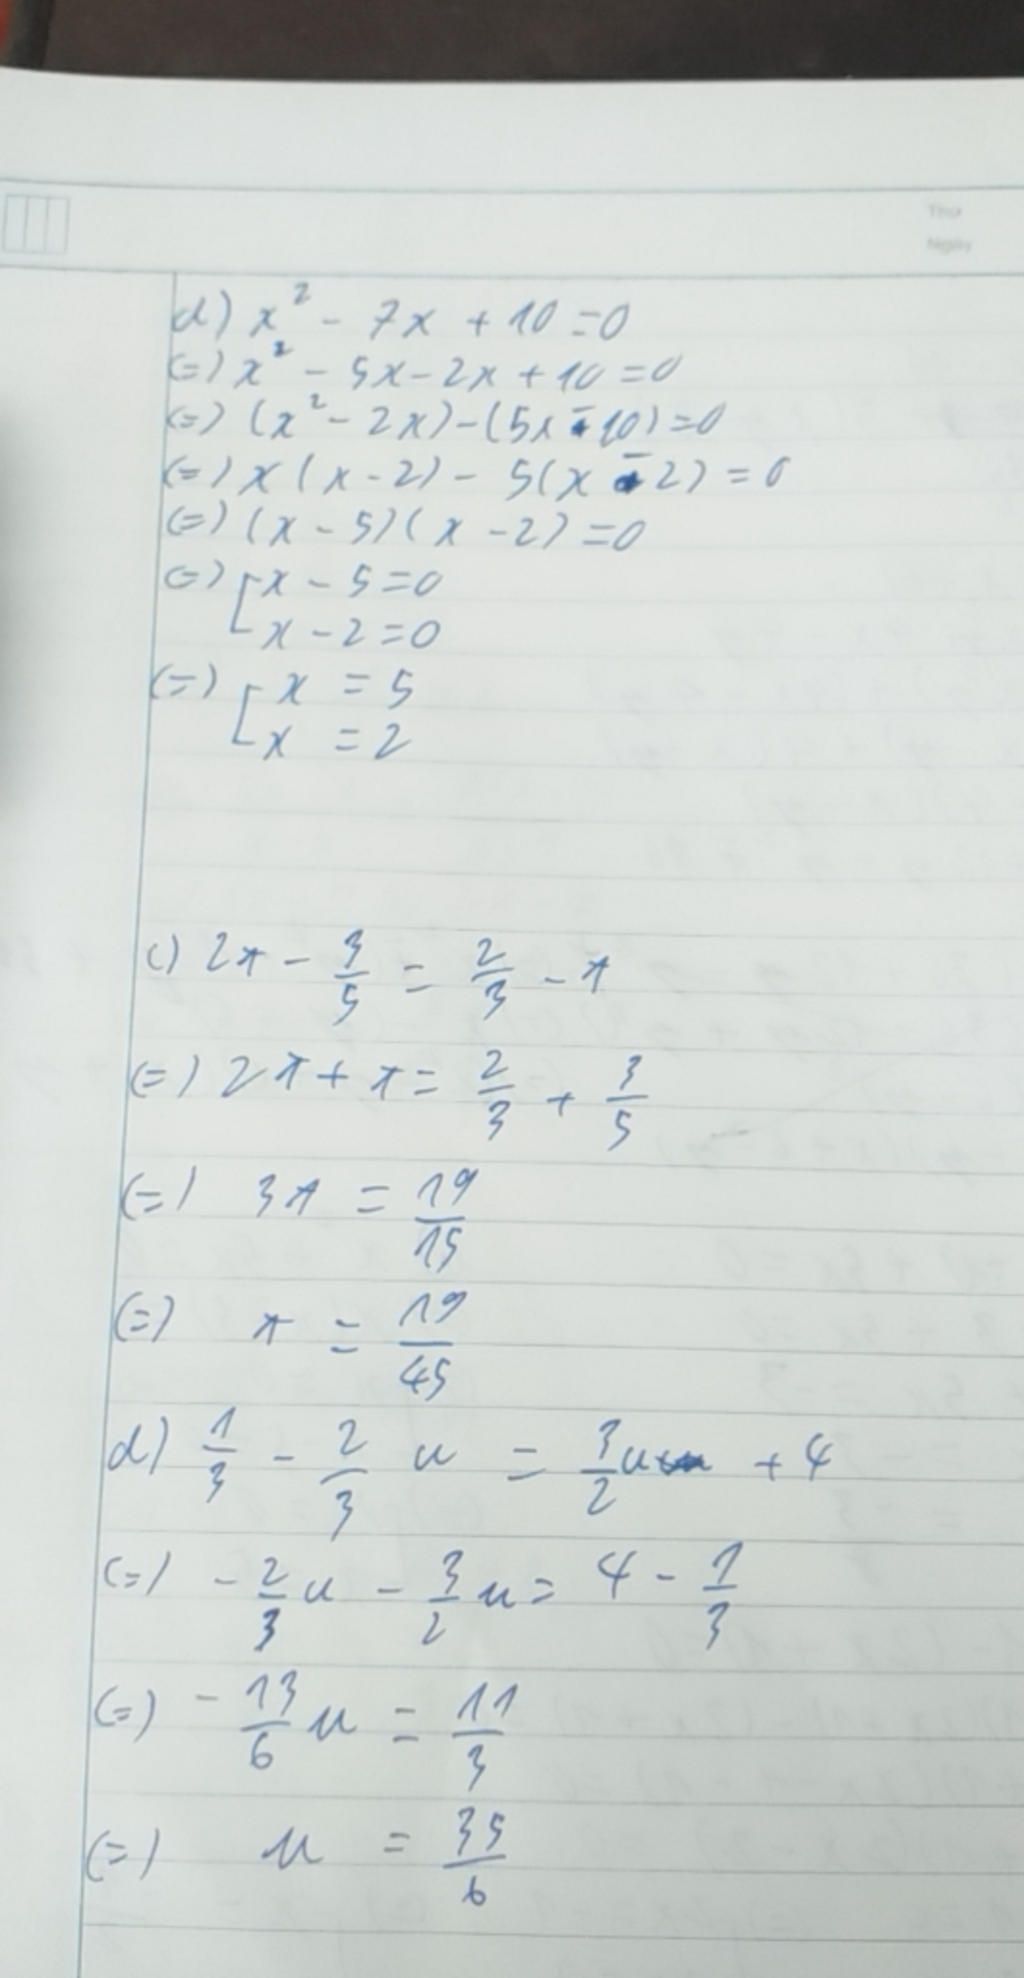 Thứ
Ngày
d) x² - 7x + 10 = 0
(=) x² - 5x - 2x + 10 = 0
(=) (x² - 2x) - (5x - 10) = 0
(=) x(x - 2) - 5(x - 2) = 0
(=) (x - 5)(x - 2) = 0
(=) [x - 5 = 0
x - 2 = 0
(=) [x = 5
x = 2
c) 2x - 3/5 = 2/3 - x
(=) 2x + x = 2/3 + 3/5
(=) 3x = 19/15
(=) x = 19/45
d) 1/3 - 2/3 u = 3/2 u + 4
(=) - 2/3 u - 3/2 u = 4 - 1/3
(=) - 13/6 u = 11/3
(=) u = 35/6